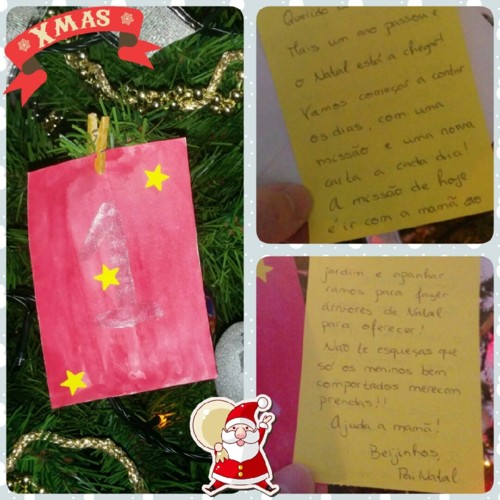 XMAS
1
Querido
Mais um ano passou e
o Natal está a chegar!
Vamos começar a contar
os dias, com uma
missão e uma nova
carta a cada dia!
A missão de hoje
é ir com a mamã ao
jardim e apanhar
ramos para fazer
árvores de Natal
para oferecer!
Não te esqueças que
só os meninos bem
comportados merecem
prendas!!
Ajuda a mamã!
Beijinhos,
Pai Natal